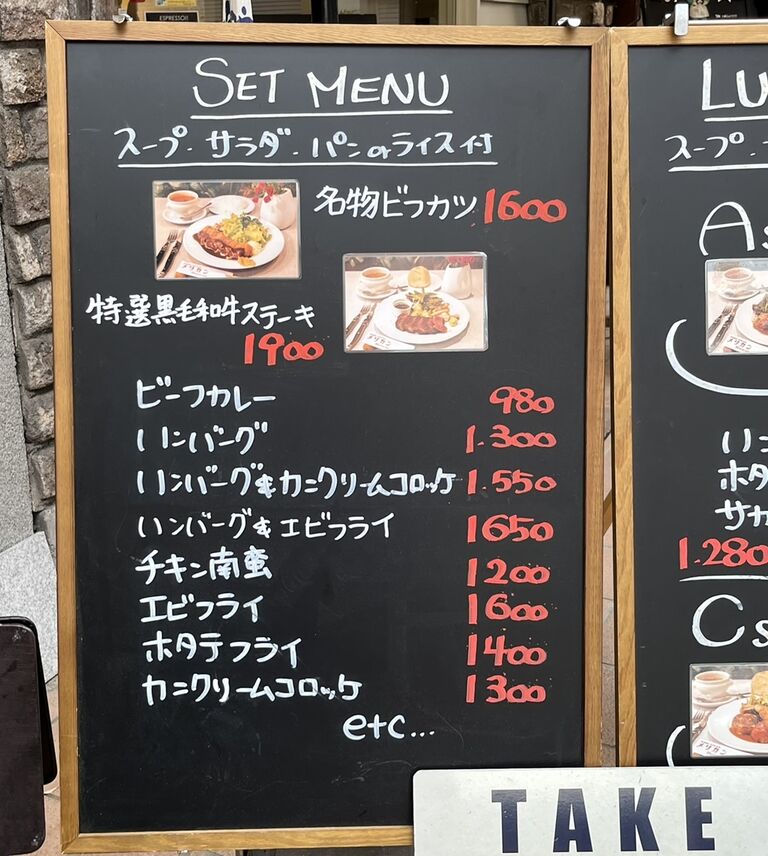 ESPRESSO!!
SET MENU
スープ・サラダ・パンorライス付
名物ビフカツ 1600
特選黒毛和牛ステーキ
1900
ビーフカレー 980
ハンバーグ 1.300
ハンバーグ&カニクリームコロッケ 1.550
ハンバーグ&エビフライ 1650
チキン南蛮 1200
エビフライ 1600
ホタテフライ 1400
カニクリームコロッケ 1300
etc...
LU
スープ・
As
ハン
ホタ
サカ
1.280
Cs
TAKE